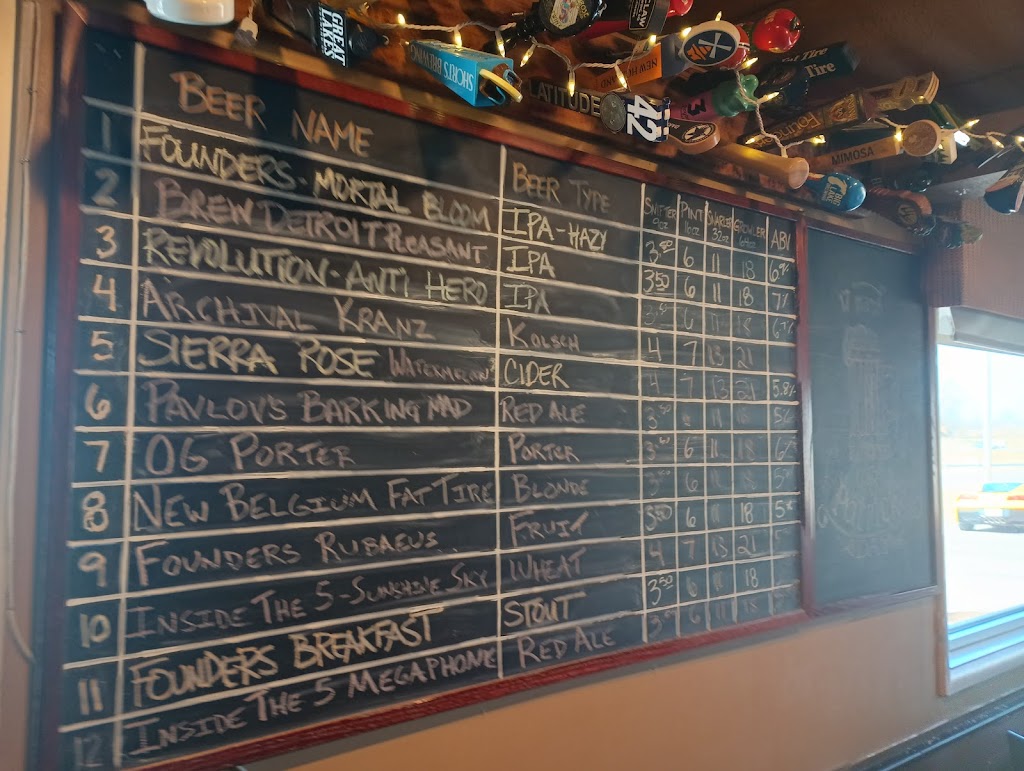 GREAT LAKES
SHORT'S BREWING
LATITUDE 42
NEW HOLLAND
Tire
Tire
3
MIMOSA
BEER NAME BEER TYPE SNIFTER PINT 16oz 32oz GROWLER 64oz ABV
1 FOUNDERS - MORTAL BLOOM IPA-HAZY 3.50 6 11 18
2 BREW DETROIT PLEASANT IPA 3.50 6 11 18 7%
3 REVOLUTION - ANTI HERO IPA 6 11 18
4 ARCHIVAL KRANZ KOLSCH 4 7 13 21
5 SIERRA ROSE WATERMELON CIDER 4 7 13 21 5.8%
6 PAVLOV'S BARKING MAD RED ALE 3.50 6 11 18
7 OG PORTER PORTER 3.50 6 11 18
8 NEW BELGIUM FAT TIRE BLONDE 6 11 18
9 FOUNDERS RUBAEUS FRUIT 3.50 6 11 18
10 INSIDE THE 5 - SUNSHINE SKY WHEAT 4 7 13 21
11 FOUNDERS BREAKFAST STOUT 3.50 6 11 18
12 INSIDE THE 5 MEGAPHONE RED ALE 6 11 18